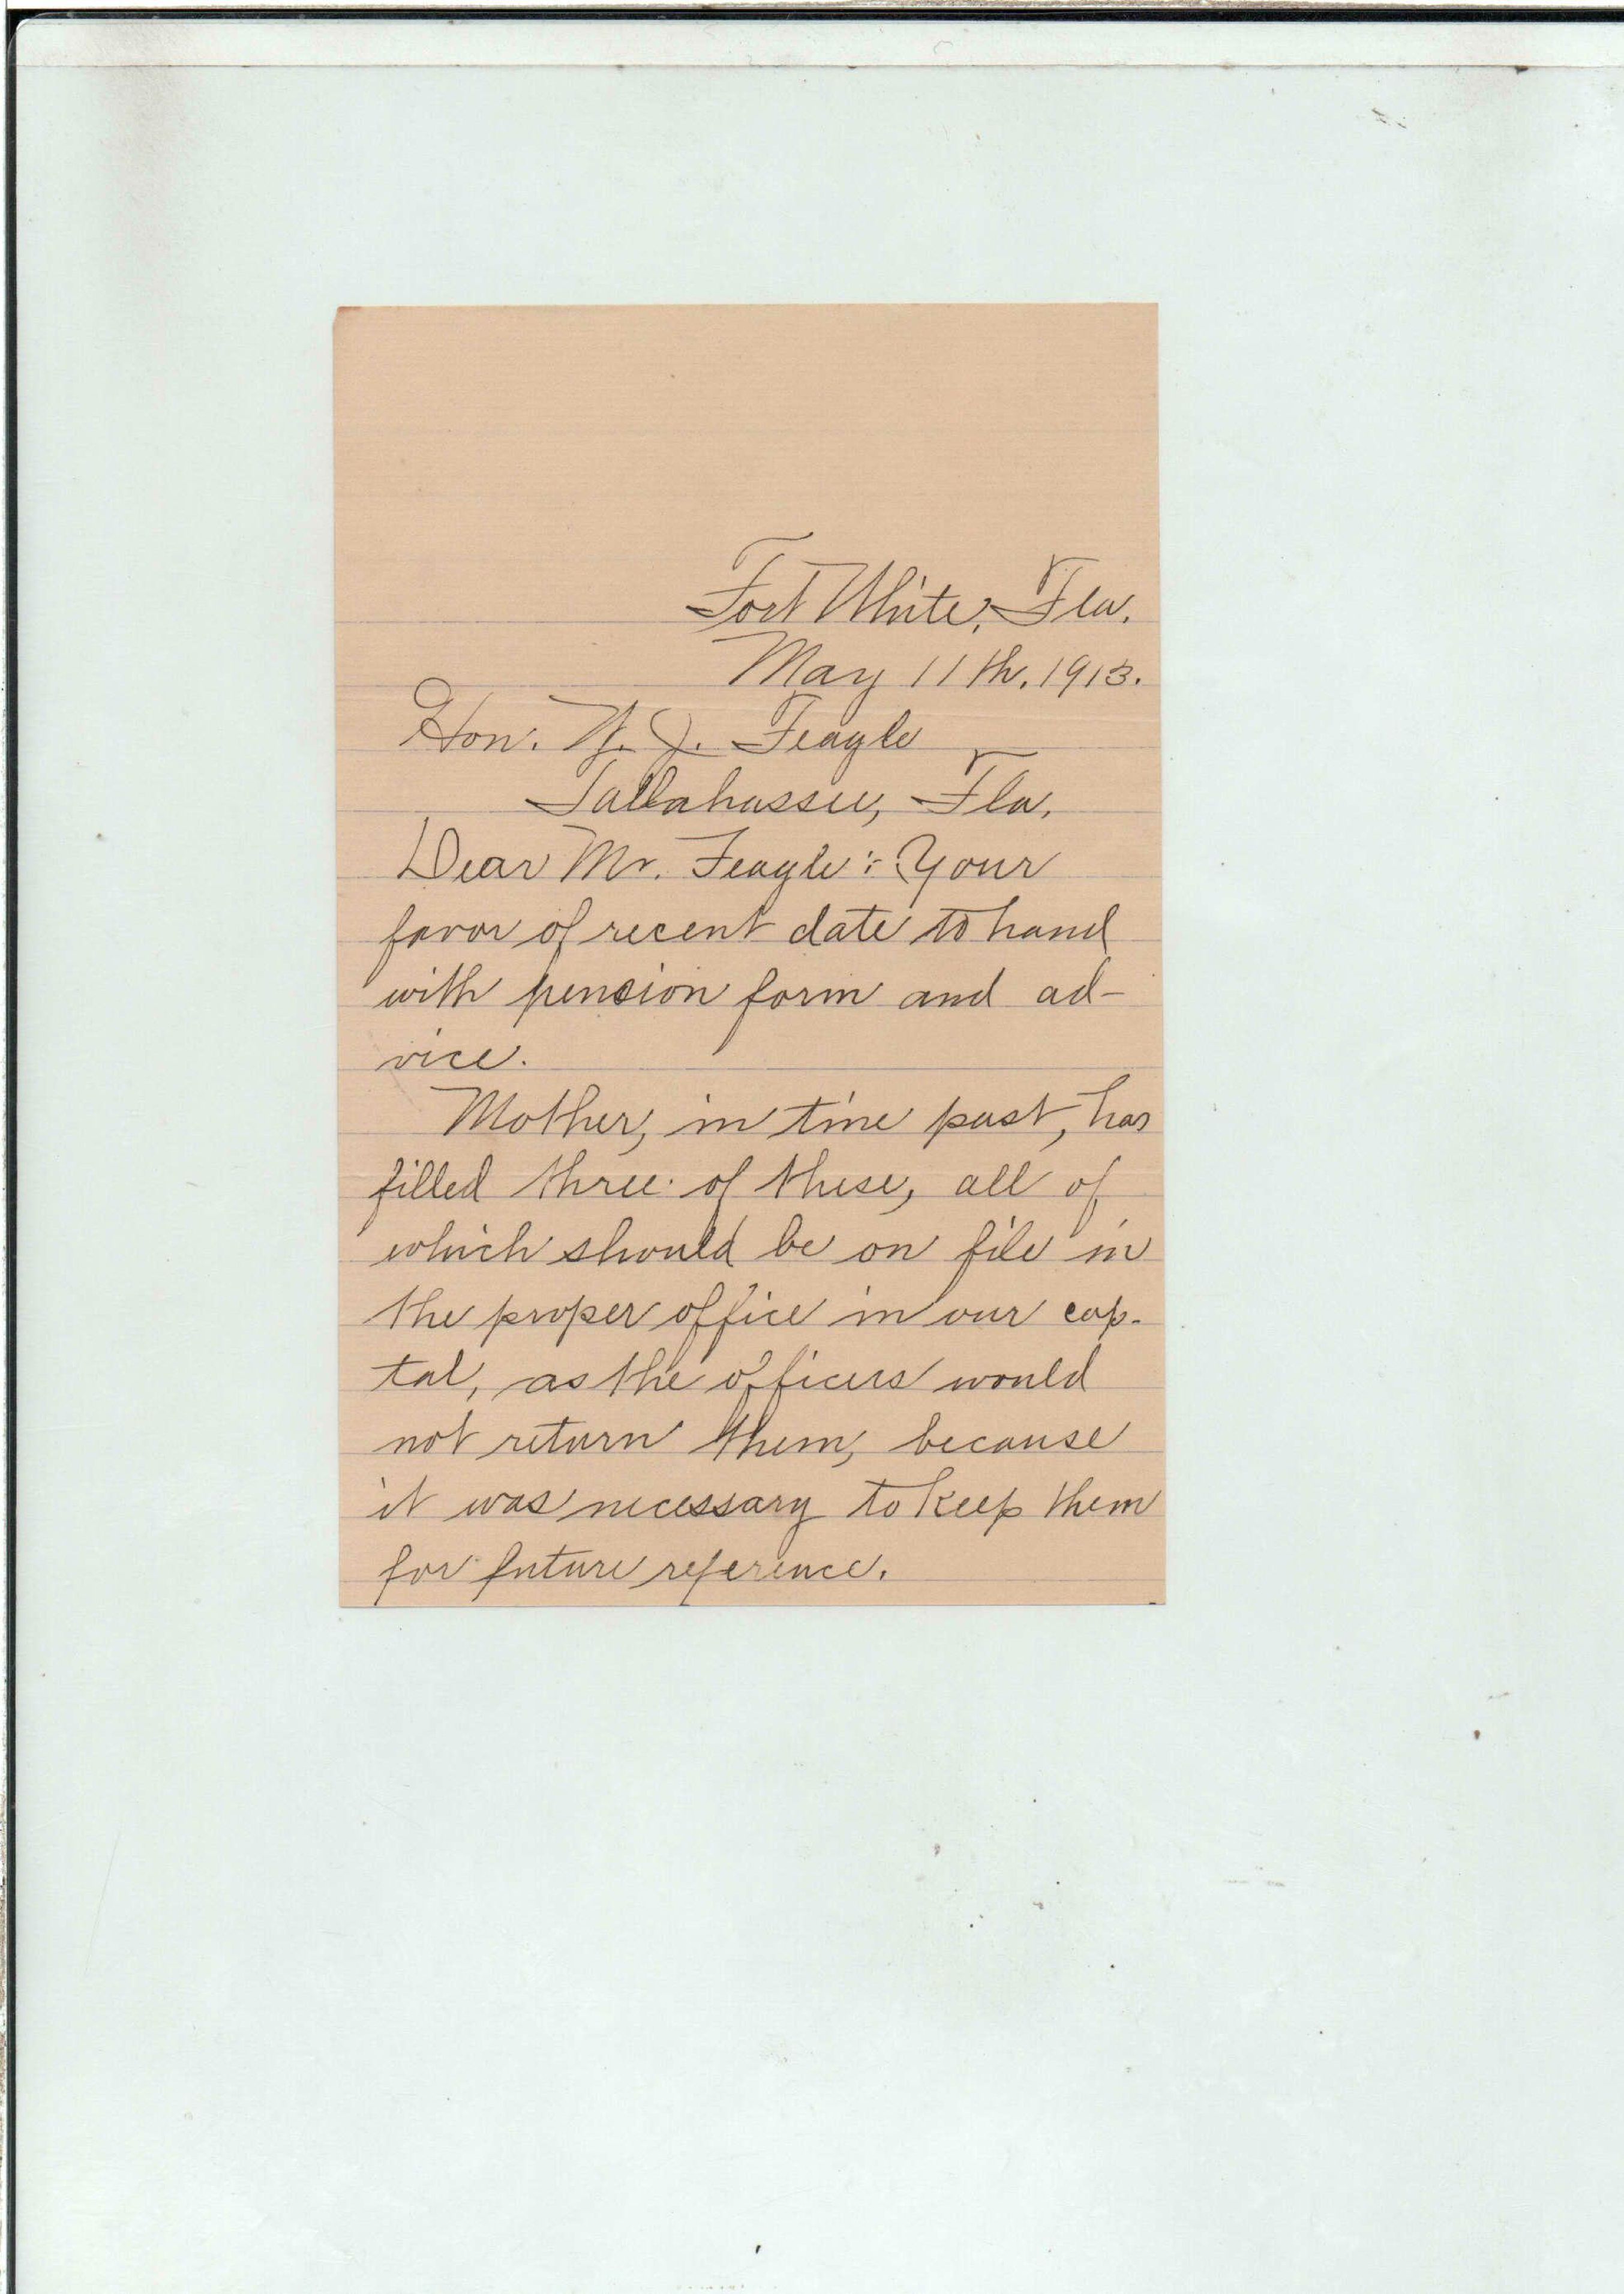 Fort White, Fla.
May 11th, 1913.
Hon. W. J. Feagle
Tallahassee, Fla.
Dear Mr. Feagle:- Your
favor of recent date to hand
with pension form and ad-
vice.
Mother, in time past, has
filled three of these, all of
which should be on file in
the proper office in our cap-
tal, as the officers would
not return them, because
it was necessary to keep them
for future reference.